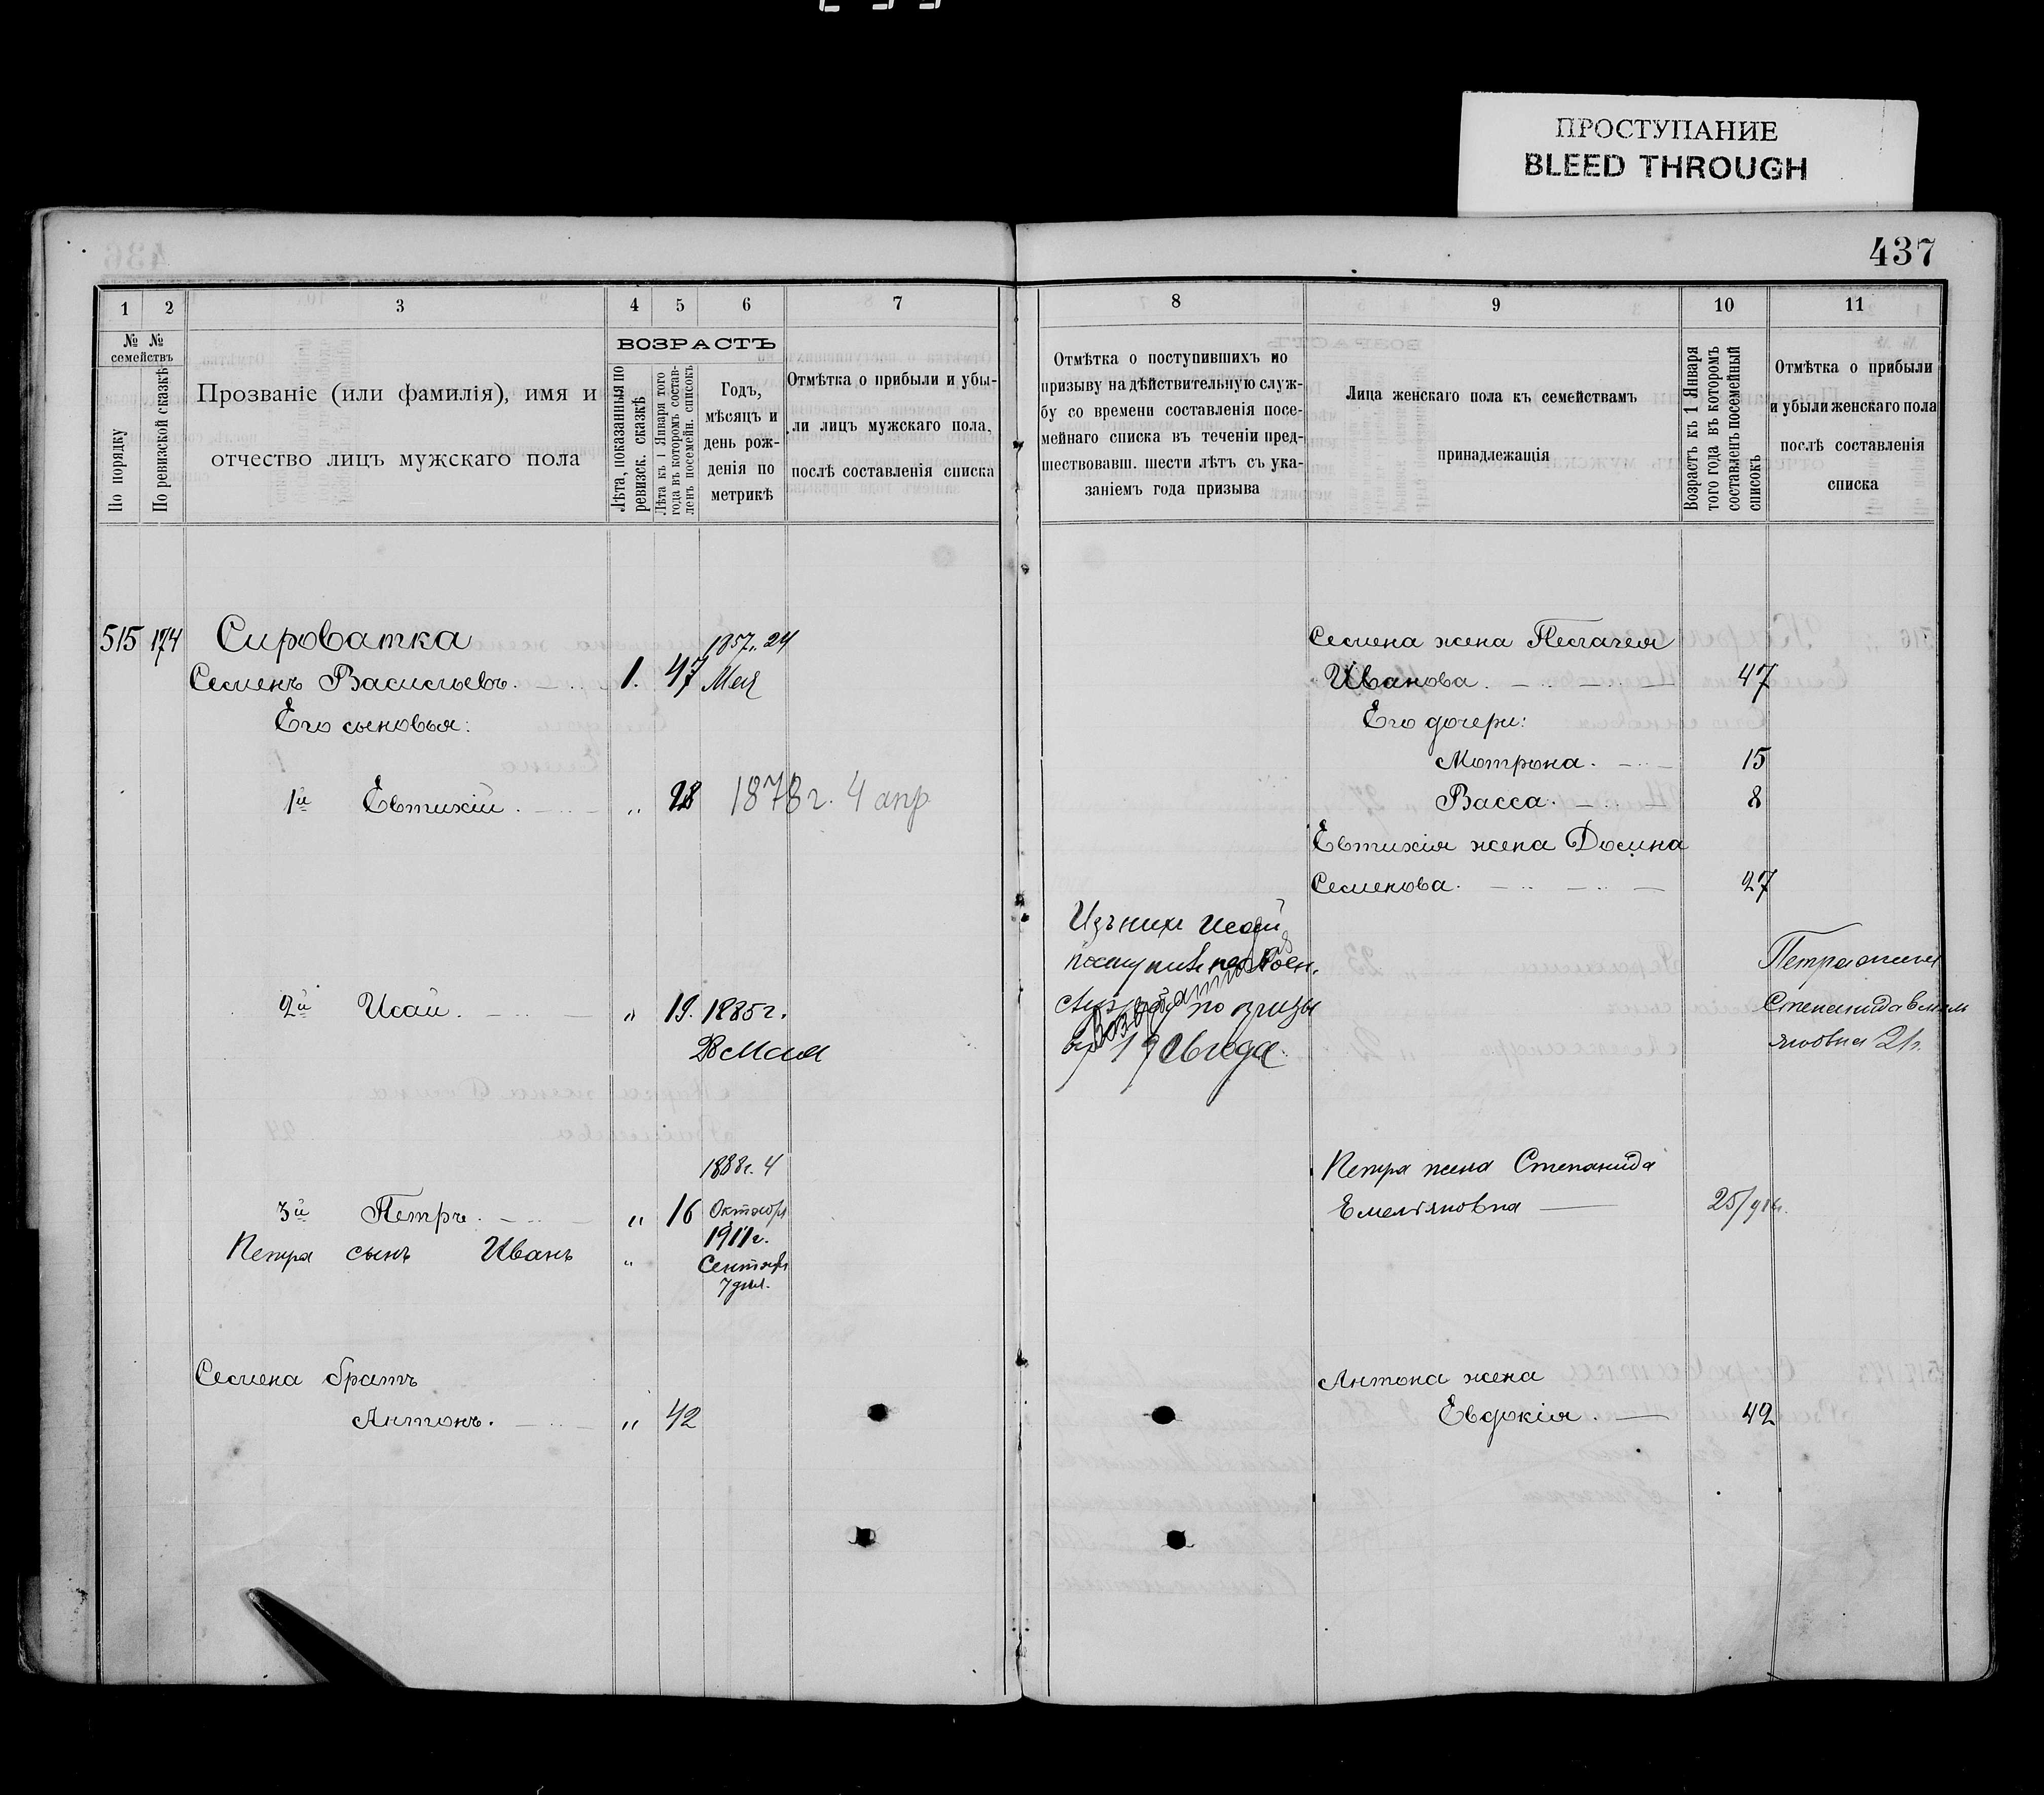 ПРОСТУПАНИЕ
BLEED THROUGH
437
1 2 3 4 5 6 7
8 9 10 11
№ №
семействъ
По порядку
По ревизской сказкѣ
Прозваніе (или фамилія), имя и
отчество лицъ мужскаго пола
ВОЗРАСТЪ
Лѣта, показанныя по
ревизск. сказкѣ
Лѣта къ 1 Января того
года въ которомъ состав-
ленъ посемейн. списокъ
Годъ,
мѣсяцъ и
день рож-
денія по
метрикѣ
Отмѣтка о прибыли и убы-
ли лицъ мужскаго пола,
послѣ составленія списка
Отмѣтка о поступившихъ по
призыву на дѣйствительную служ-
бу со времени составленія посе-
мейнаго списка въ теченіи пред-
шествовавш. шести лѣтъ съ ука-
заніемъ года призыва
Лица женскаго пола къ семействамъ
принадлежащія
Возрастъ къ 1 Января
того года въ которомъ
составленъ посемейный
списокъ
Отмѣтка о прибыли
и убыли женскаго пола
послѣ составленія
списка
515 174 Сироватка
1857. 24
Семенъ Васильевъ. 1. 47 Мая
Его сыновья:
1й Евтихій. „ 28 1878 г. 4 апр
2й Исай. „ 19. 1885 г.
28 Мая
1888 г. 4
3й Петръ. „ 16 Октября
1911 г.
Петра сынъ Иванъ „ Сентябр
7 дня.
Семена братъ
Антонъ. „ 42
Изъ нихъ Исай
поступилъ на воен.
служ по призы
1906 года.
Семена жена Пелагея
Иванова. 47
Его дочери:
Мотрона. 15
Васса. 8
Евтихія жена Домна
Семенова. 27
Петра жена
Степанида Емель
яновна 21 г.
Петра жена Степанида
Емельяновна 25
Антона жена
Евдокія. 42